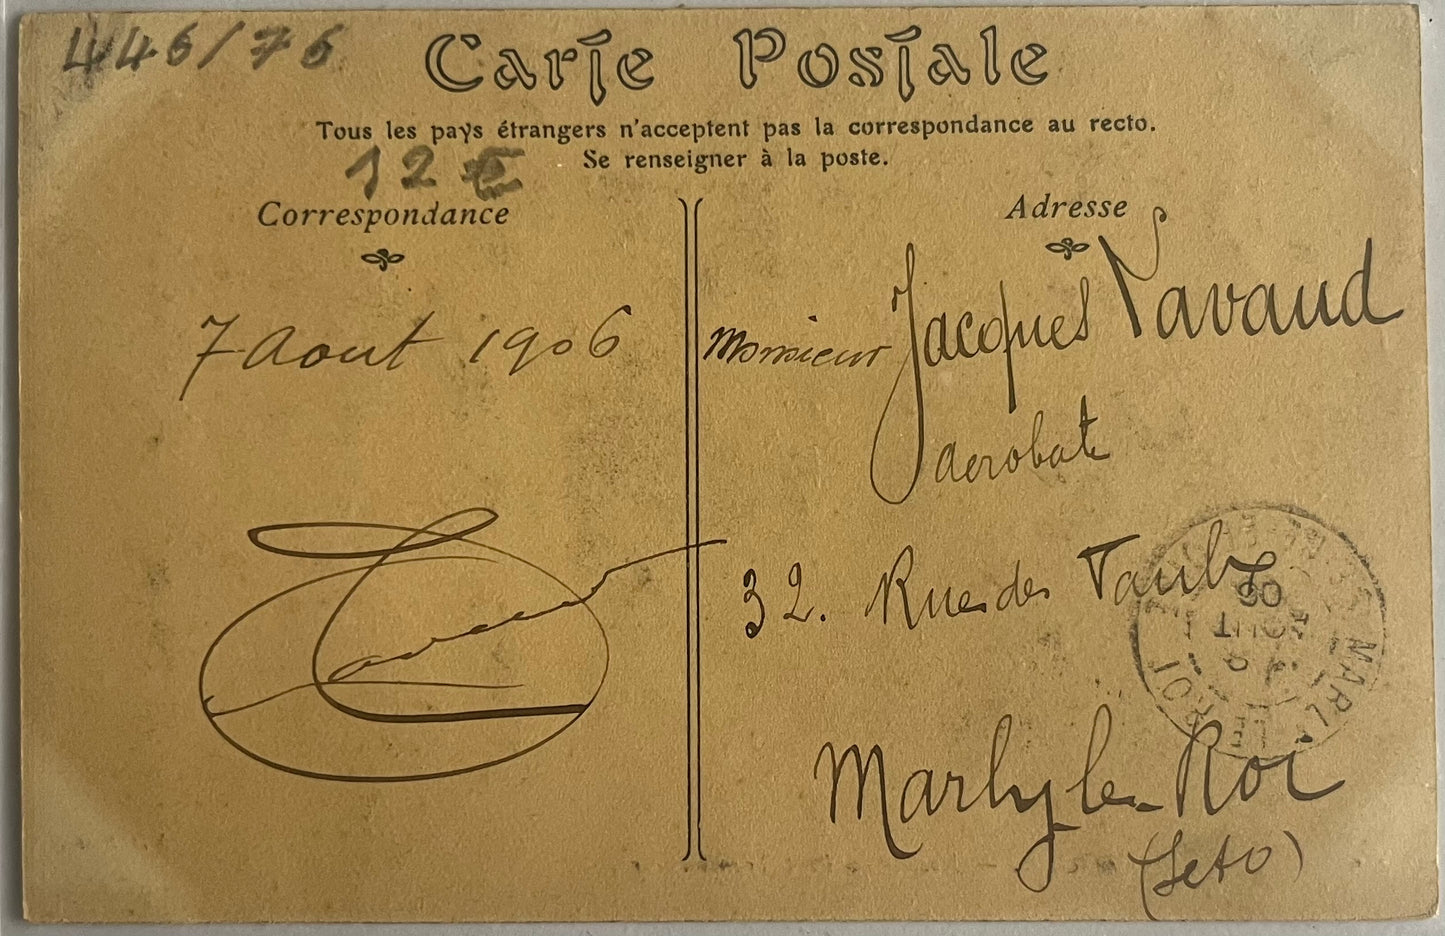 446/76
Carte Postale
Tous les pays étrangers n'acceptent pas la correspondance au recto.
Se renseigner à la poste.
12 €
Correspondance
7 Aout 1906
Adresse
Monsieur Jacques Navaud
acrobate
32. Rue des
Marly le Roi
(Seto)
MARL
ROI
AOUT
06